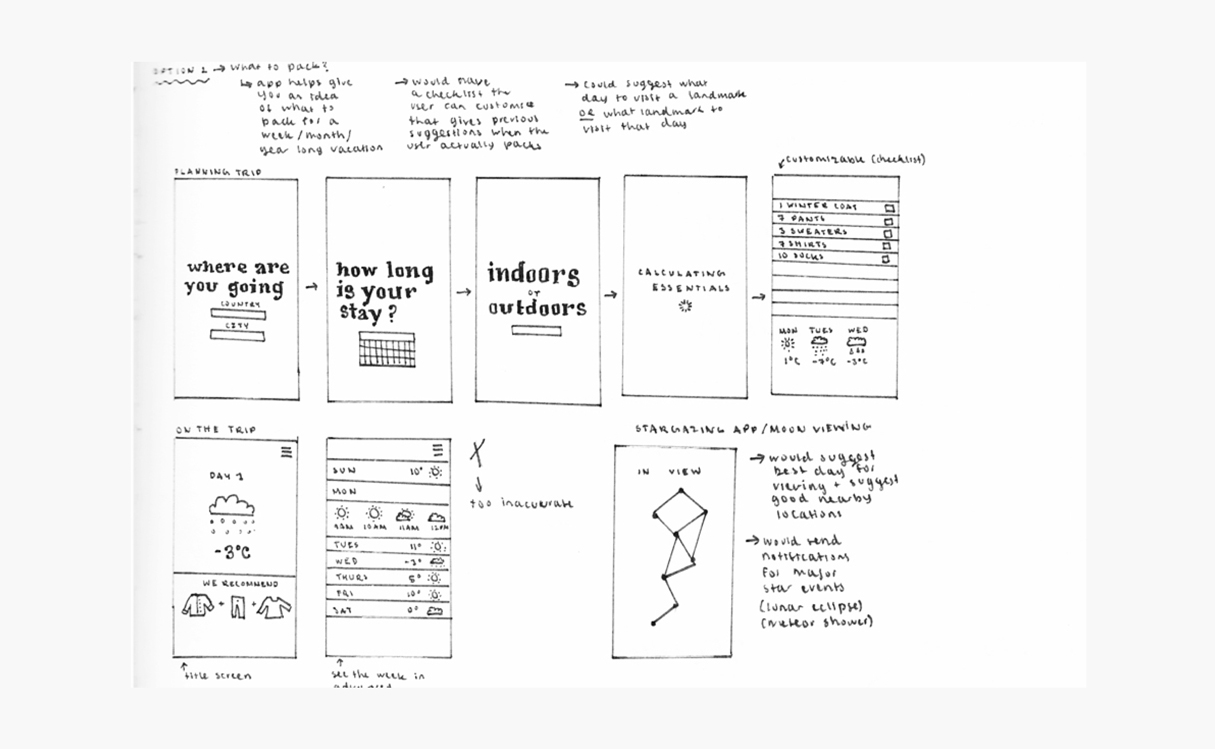 OPTION 1 → What to pack?
↳ app helps give
you an idea
of what to
pack for a
week/month/
year long vacation
→ would have
a checklist the
user can customize
that gives previous
suggestions when the
user actually packs
→ could suggest what
day to visit a landmark
or what landmark to
visit that day
PLANNING TRIP
where are
you going
COUNTRY
CITY
→
how long
is your
stay?
→
indoors
or
outdoors
→
CALCULATING
ESSENTIALS
→
customizable (checklist)
1 WINTER COAT
7 PANTS
3 SWEATERS
7 SHIRTS
10 SOCKS
MON TUES WED
1°C -7°C -3°C
ON THE TRIP
DAY 1
-3°C
WE RECOMMEND
+ +
title screen
SUN 10°
MON
9AM 10AM 11AM 12PM
TUES 11°
WED -2°
THURS 5°
FRI 10°
SAT 0°
see the week in
X
↓
too inaccurate
STARGAZING APP/MOON VIEWING
IN VIEW
→ would suggest
best day for
viewing + suggest
good nearby
locations
→ would send
notifications
for major
star events
(lunar eclipse)
(meteor shower)